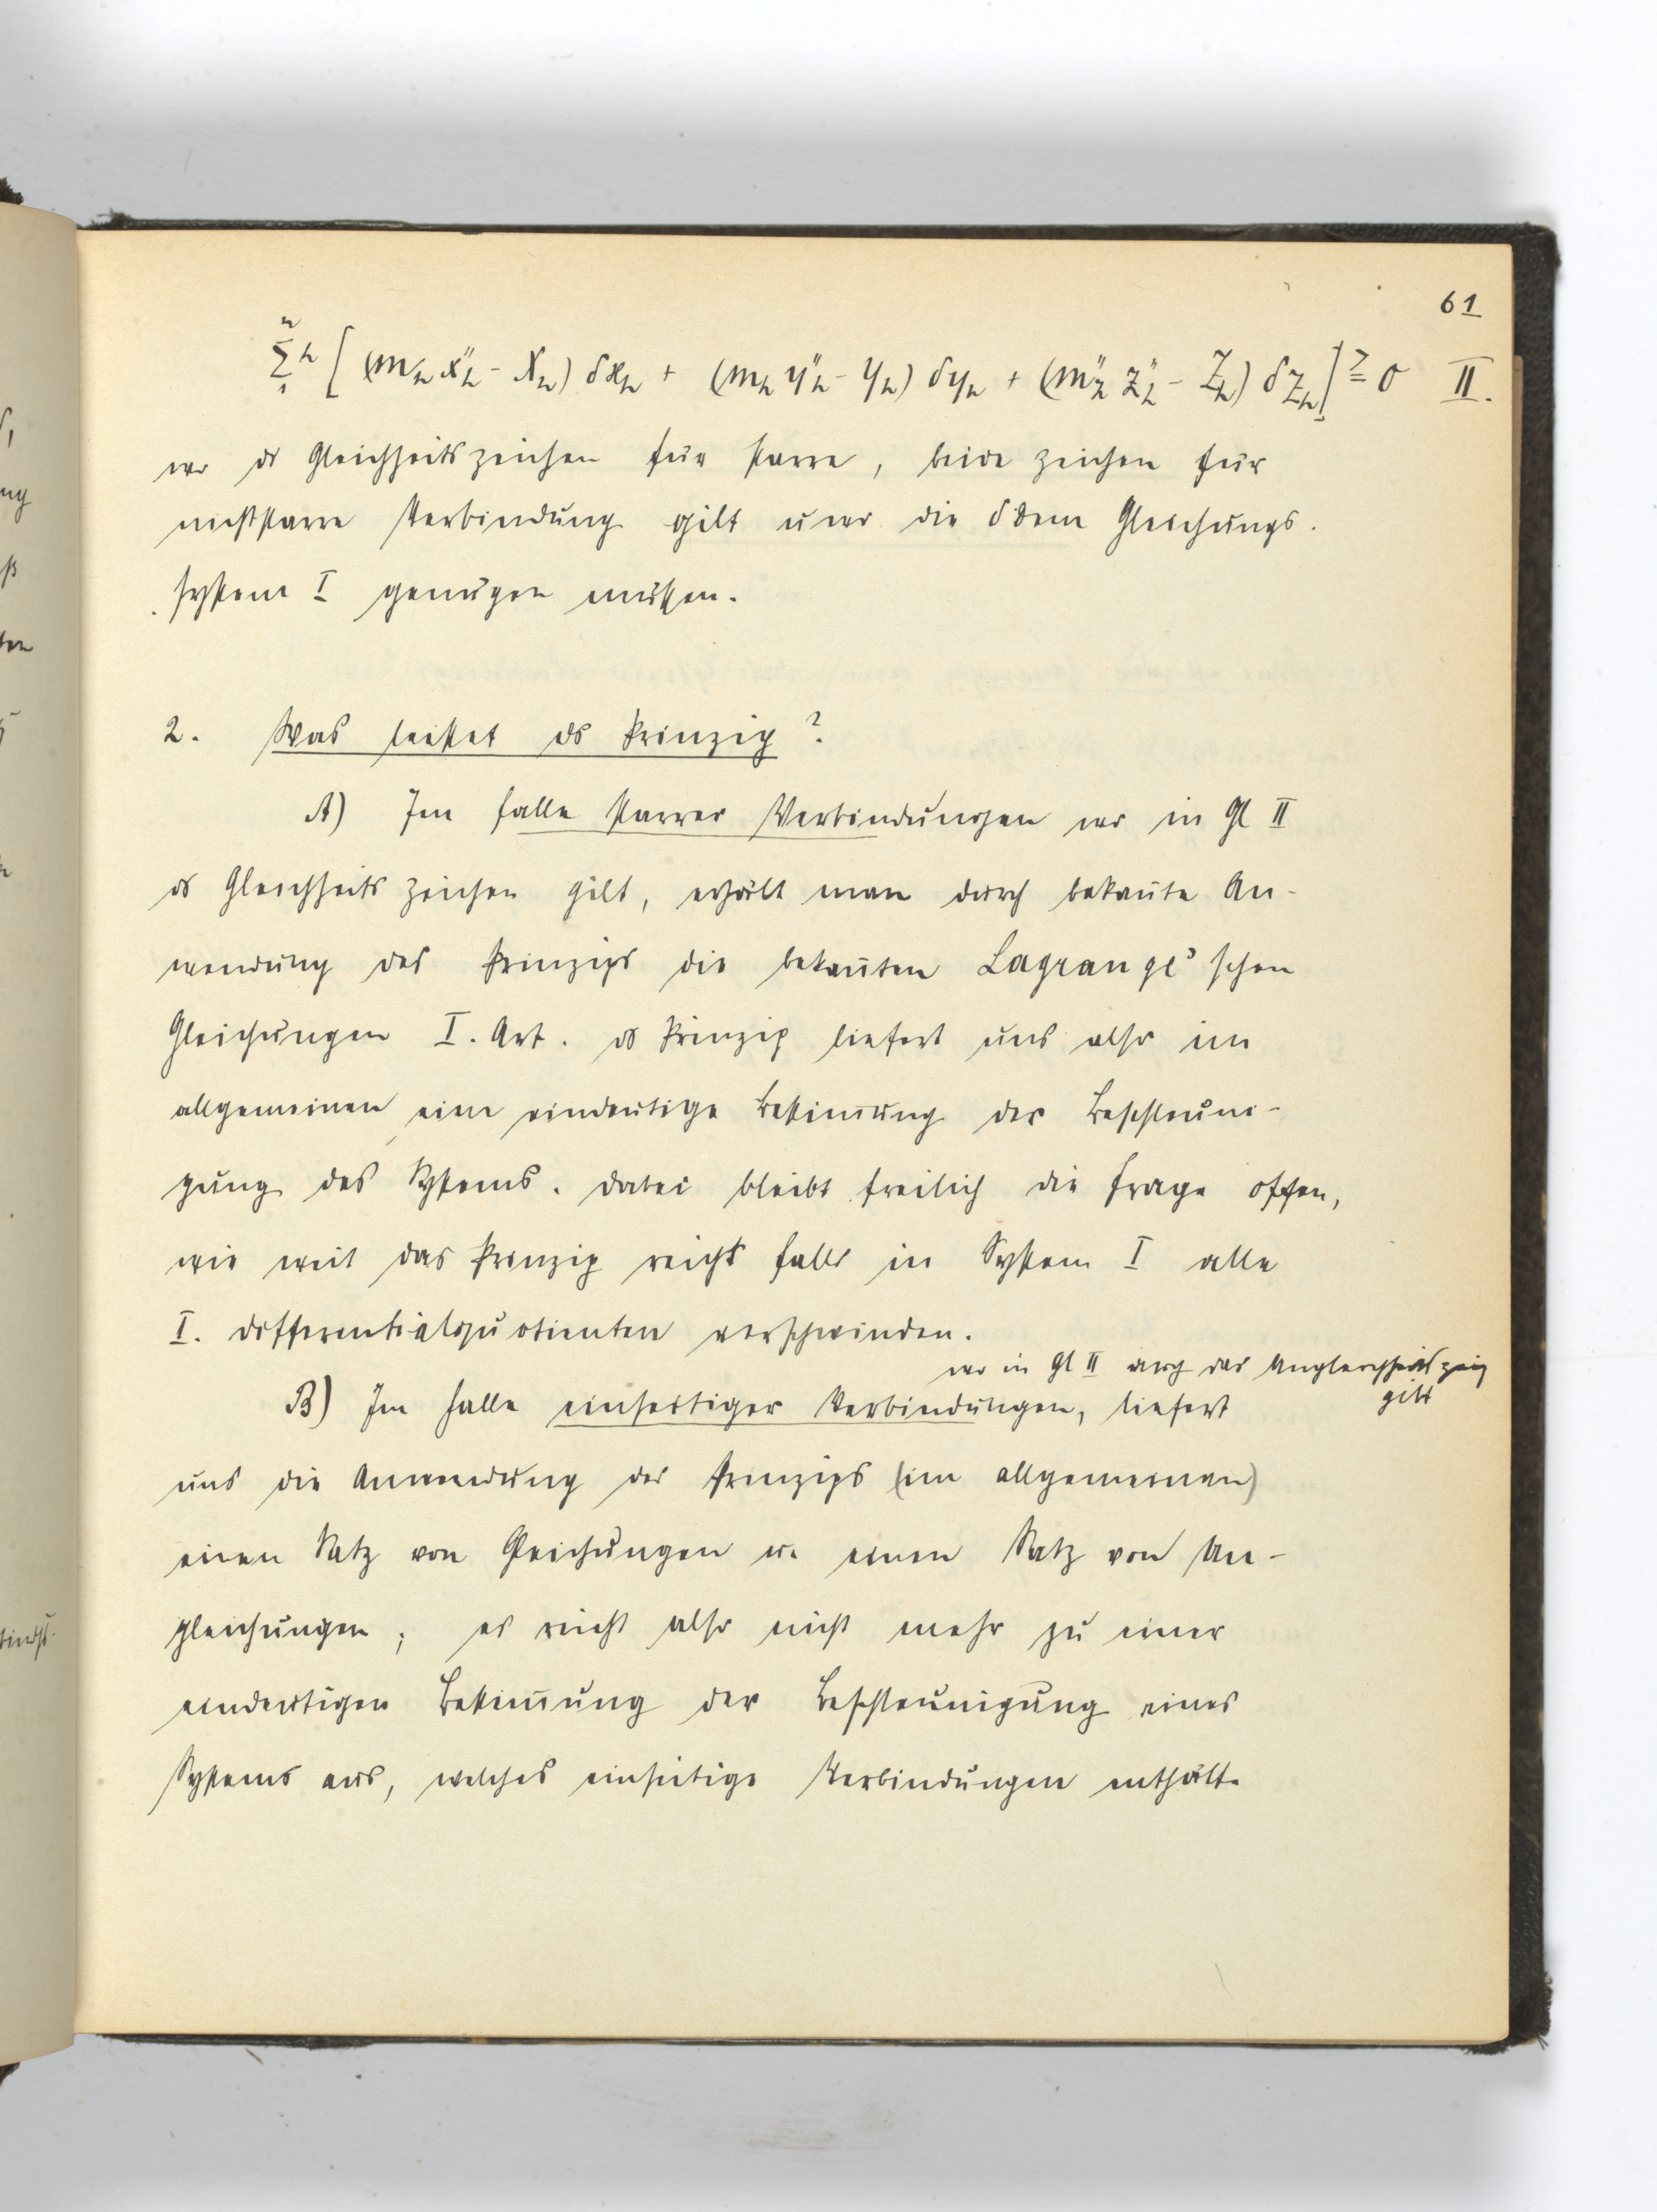 61
n Σ h 1 [ (m_h x''_h - X_h) δx_h + (m_h y''_h - Y_h) δy_h + (m''_h z''_h - Z_h) δz_h ] >= 0 II.
wo ds Gleichheitszeichen für starre, beide zeichen für
nichtstarre Verbindung gilt u wo die δ dem Gleichungs.
system I genügen müssen.
2. Was leistet ds Prinzip?
A) Im Falle starrer Verbindungen wo in Gl II
ds Gleichheitszeichen gilt, erhält man durch bekan̅te An-
wendung des Prinzips die bekan̅ten Lagrange'schen
Gleichungen I. Art. ds Prinzip liefert uns also im
allgemeinen eine eindeutige Bestim̅ung der Beschleuni-
gung des Systems. Dabei bleibt freilich die Frage offen,
wie weit das Prinzip reicht falls in System I alle
I. Differentialquotienten verschwinden.
wo in Gl II auch das Ungleichheitszeich
gilt
B) Im Falle einseitiger Verbindungen, liefert
uns die Anwendung des Prinzips (im allgemeinen)
einen Satz von Gleichungen u. einen Satz von Un-
gleichungen; es reicht also nicht mehr zu einer
eindeutigen Bestim̅ung der Beschleunigung eines
Systems aus, welches einseitige Verbindungen enthält.